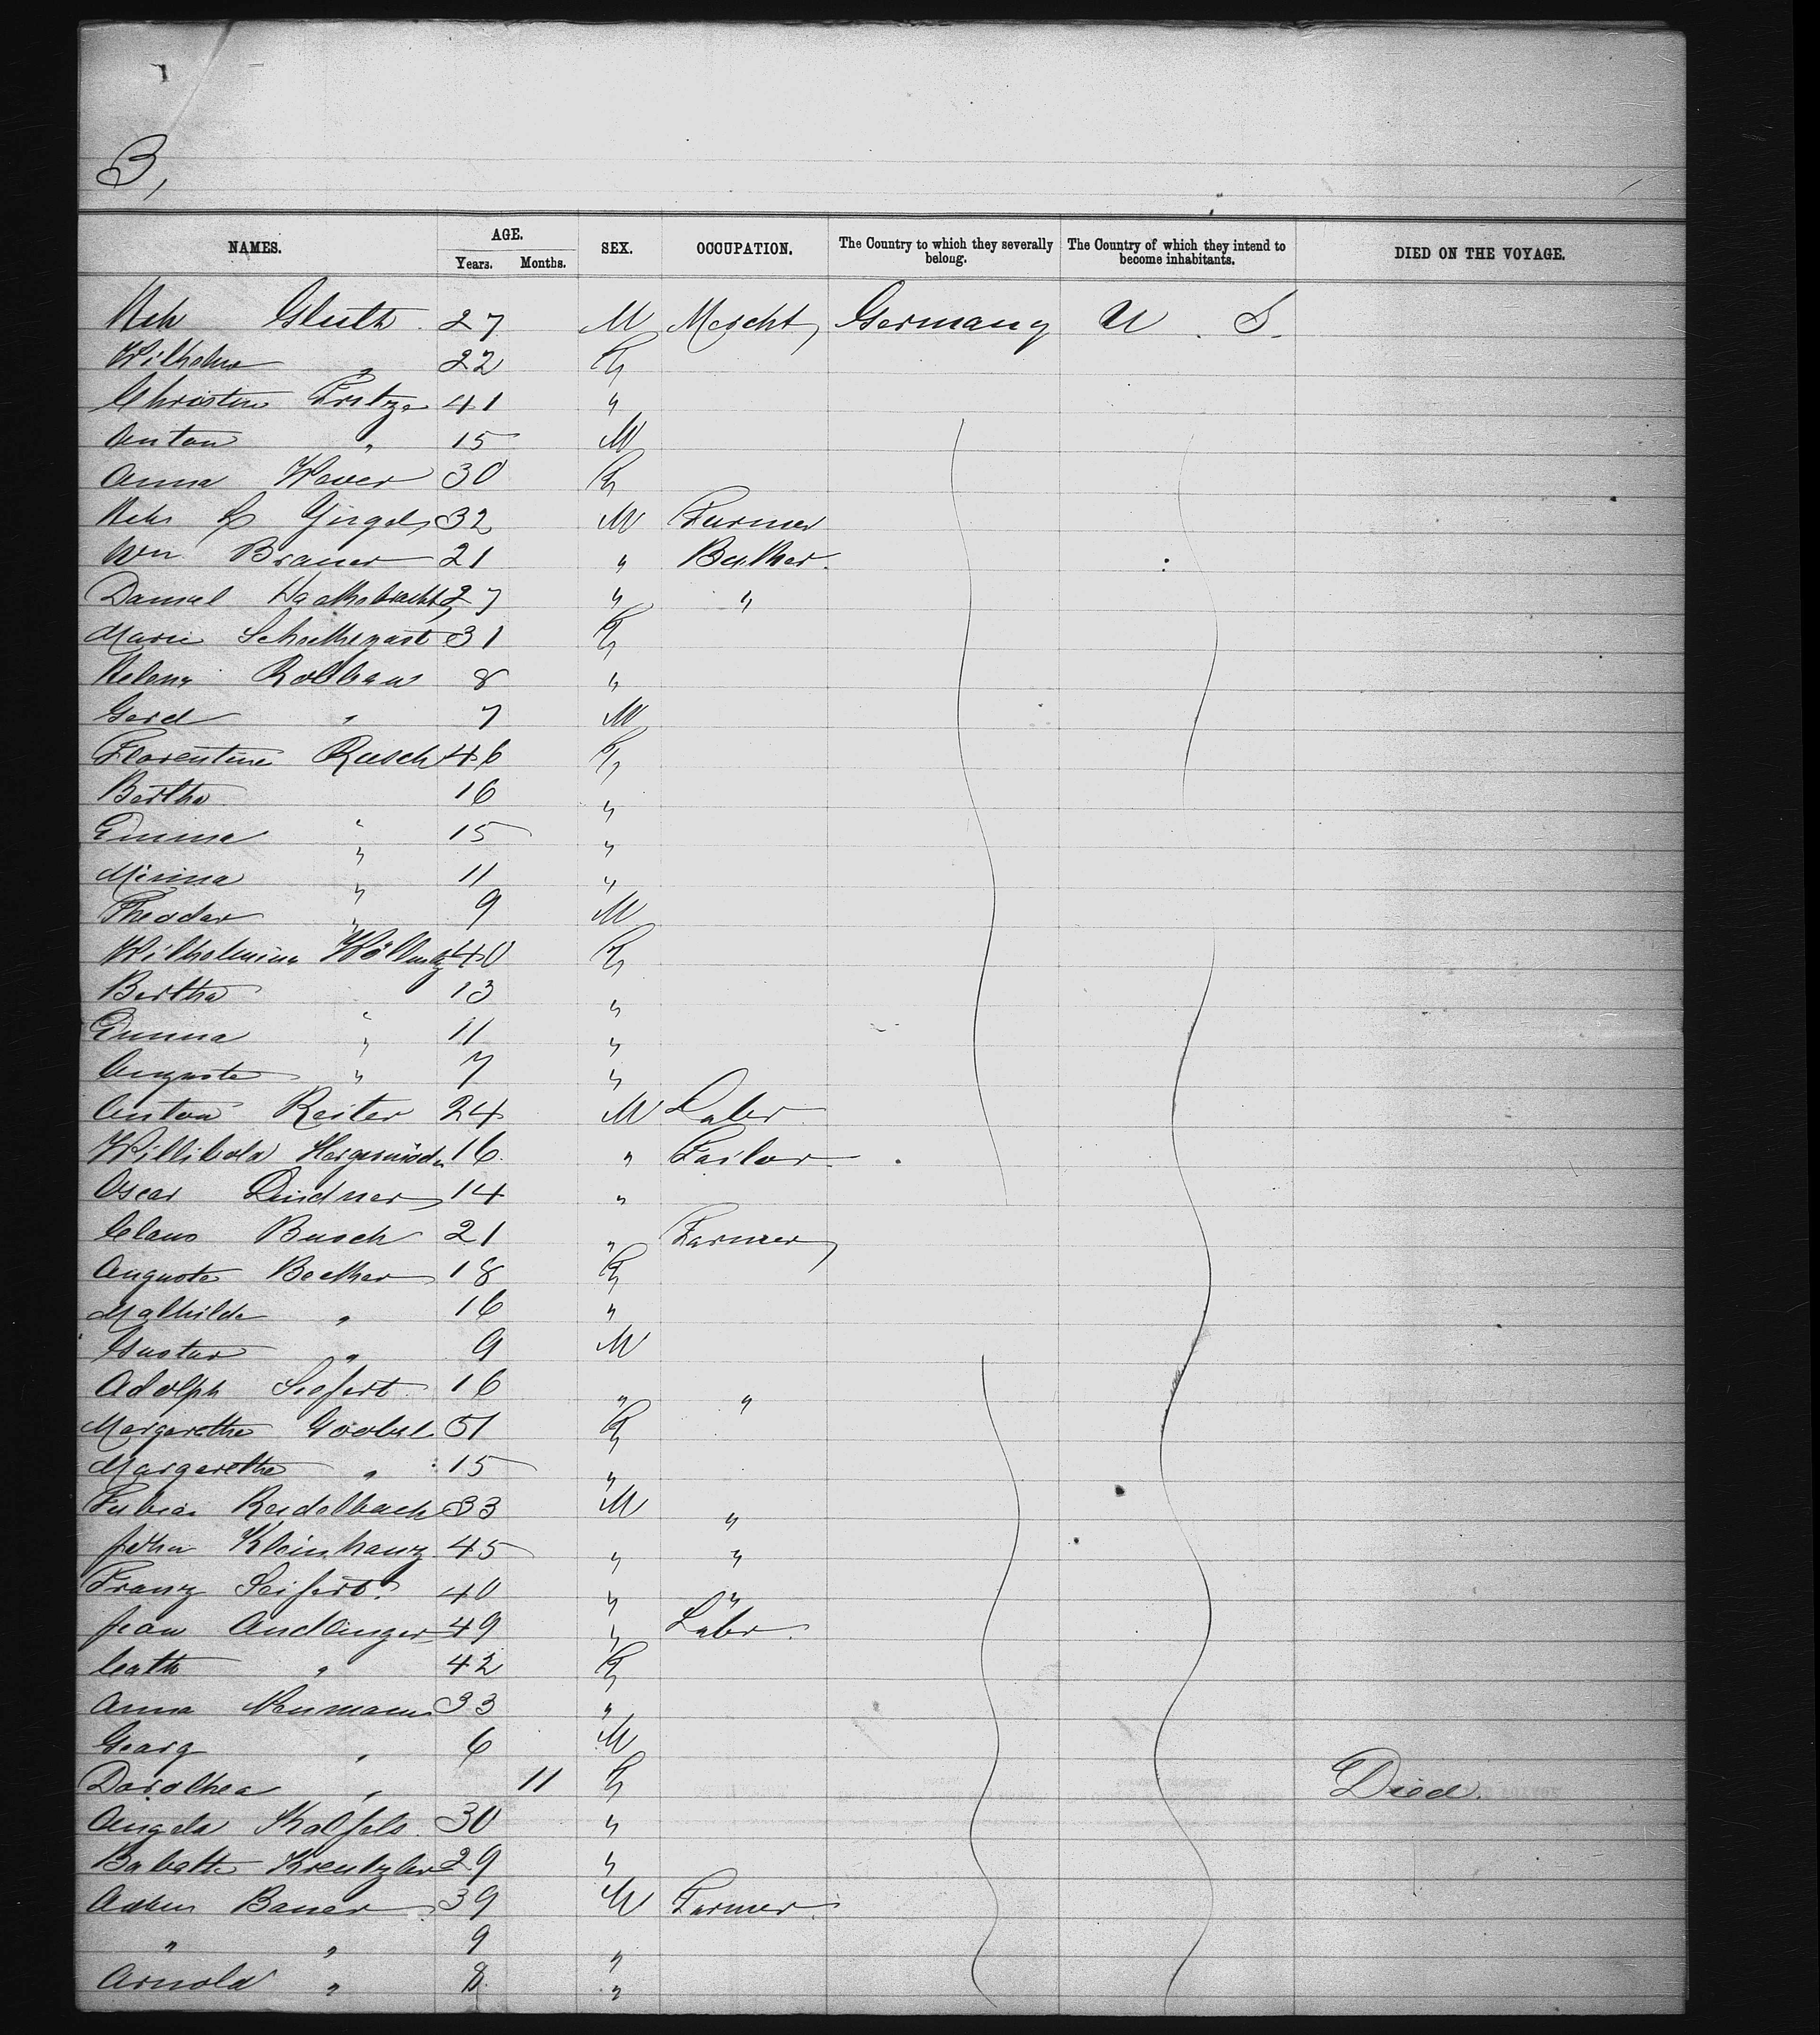 3,
NAMES. AGE. SEX. OCCUPATION. The Country to which they severally belong. The Country of which they intend to become inhabitants. DIED ON THE VOYAGE.
Years. Months.
Gluth 27 M Mercht Germany U. S.
Wilhelm " 22 F
Christine Fritze 41 "
Anton " 15 M
Anna Wever 30 F
32 M Farmer
Wm Brauer 21 " Bucher
Daniel 27 " "
Marie 31 F
Helene Rolbean 8 "
Gerd " 7 M
Florentine Rusch 46 F
Bertha " 16 "
Emma " 15 "
Minna " 11 "
Theodor " 9 M
Wilhelmine 40 F
Bertha " 13 "
Emma " 11 "
Auguste " 7 "
Anton Reiter 24 M Labr
Willibald 16 " Tailor
Oscar Lindner 14 "
Claus Busch 21 " Farmer
Auguste Becker 18 F
Mathilde " 16 "
Gustav " 9 M
Adolph Seifert 16 " "
Margarethe Goebel 51 F
Margarethe " 15 "
Fabian Reidelbach 33 M "
Kleinhanz 45 " "
Franz Seifert 40 " "
Jean Andlinger 49 " Labr.
Cath " 42 F
Anna Neumann 33 "
Georg " 6 M
Dorothea " 11 F Died.
Angela Kalfels 30 "
Babette Kreutzler 29 "
Adam Bauer 39 M Farmer
" " 9 "
Arnold " 8 "